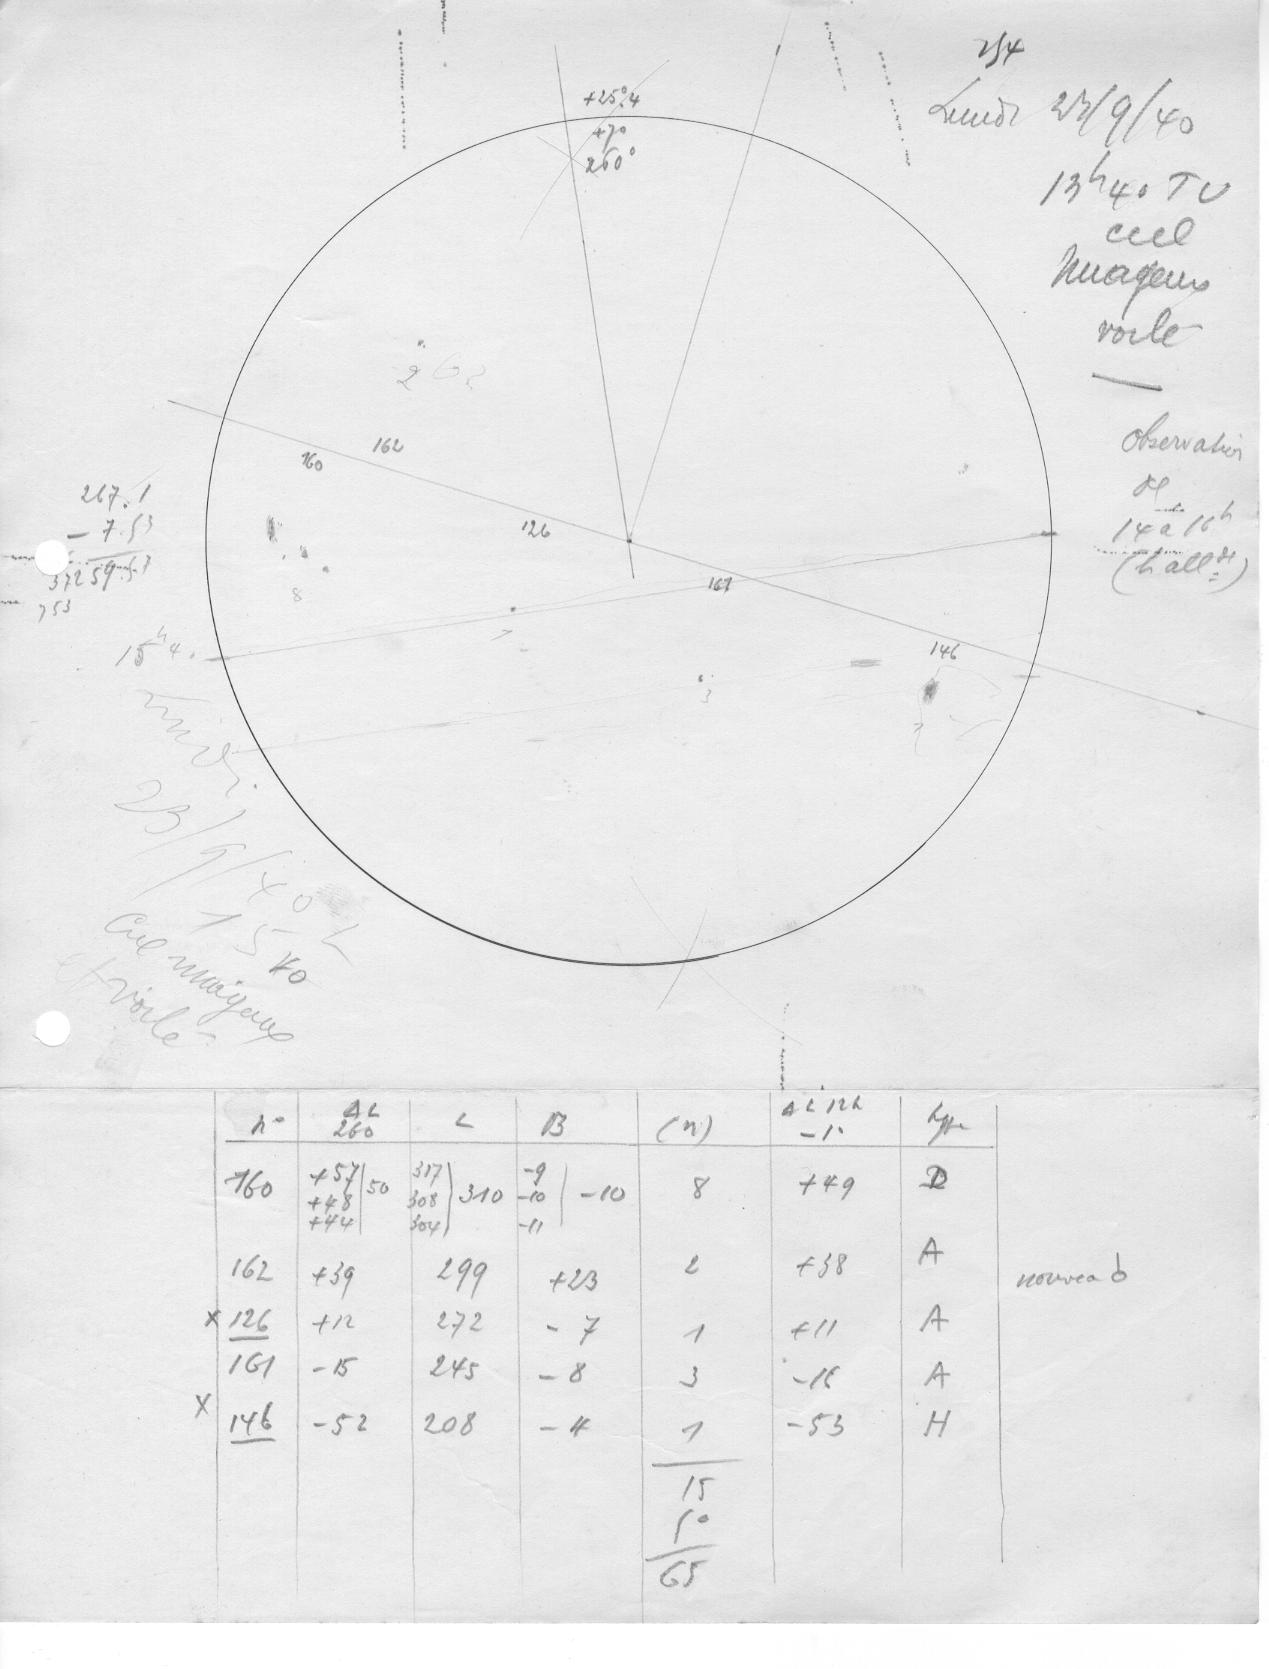 254
Lundi 23/9/40
13h40 TU
ciel
nuageux
voilé
Observation
de
14 à 16h
(h allde)
+25°.4
+7°
260°
2
162
160
126
8
161
146
3
1
267.1
- 7.53
259.57
372
753
15h40
Lundi
23/9/40
15h40
Ciel nuageux
et voilé
n° ΔL 260 L B (n) ΔL 12h -1° type
160 +57 +48 +44 50 317 308 304 310 -9 -10 -11 -10 8 +49 D
162 +39 299 +23 2 +38 A nouveau
x 126 +12 272 - 7 1 +11 A
161 -15 245 - 8 3 -16 A
x 146 -52 208 - 4 1 -53 H
15
50
65